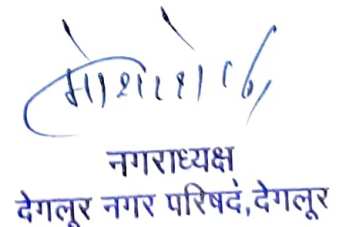 नगराध्यक्ष
देगलूर नगर परिषद,देगलूर